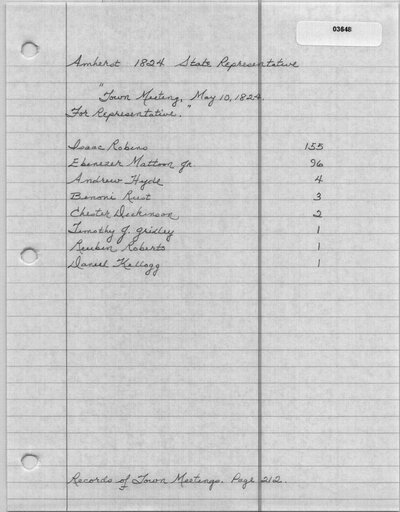 03648
Amherst 1824 State Representative
"Town Meeting, May 10, 1824.
For Representative."
Isaac Robins 155
Ebenezer Mattoon Jr 96
Andrew Hyde 4
Benoni Rust 3
Chester Dickinson 2
Timothy J. Gridley 1
Reuben Roberts 1
Daniel Kellogg 1
Records of Town Meetings. Page 212.